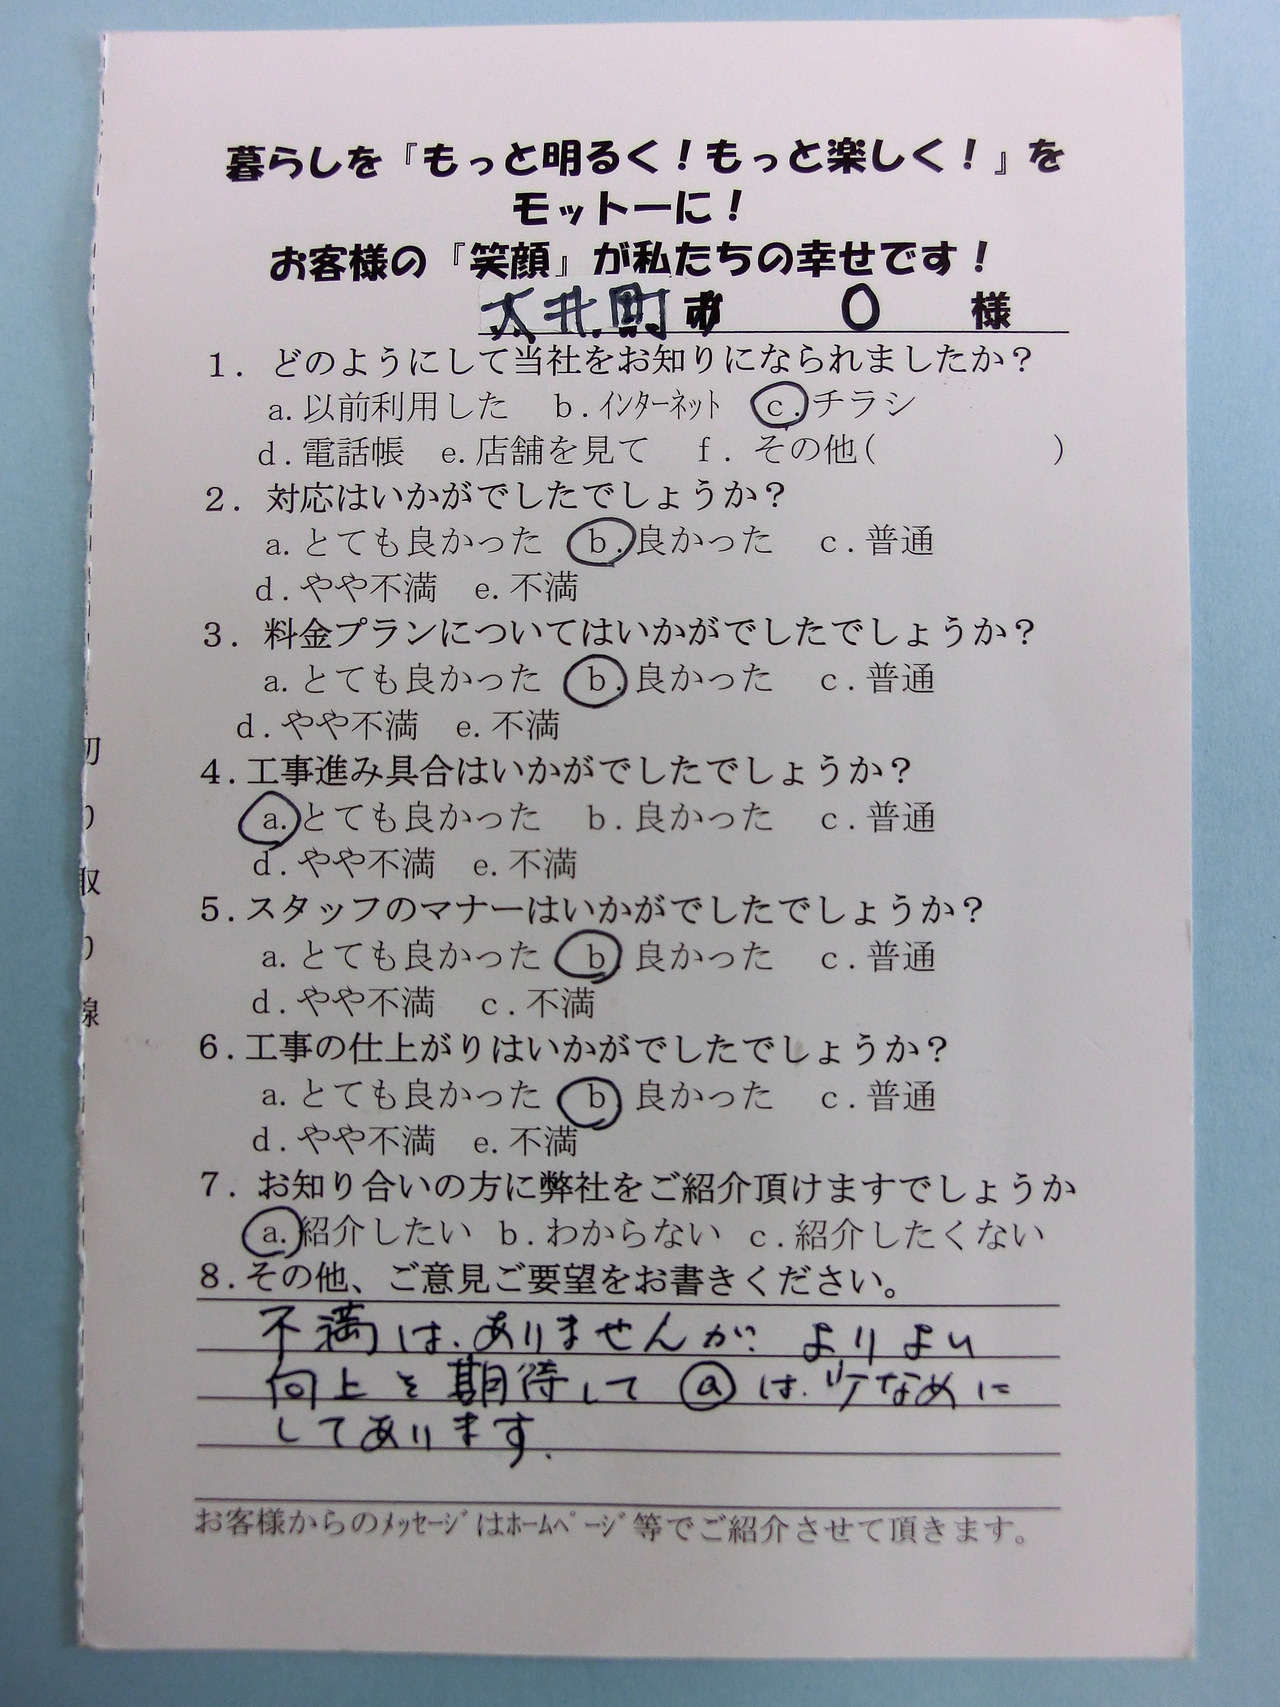 暮らしを『もっと明るく！もっと楽しく！』を
モットーに！
お客様の『笑顔』が私たちの幸せです！
大井町 O 様
１．どのようにして当社をお知りになられましたか？
a.以前利用した b.ｲﾝﾀｰﾈｯﾄ c.チラシ
d.電話帳 e.店舗を見て f．その他( )
２．対応はいかがでしたでしょうか？
a.とても良かった b.良かった c.普通
d.やや不満 e.不満
３．料金プランについてはいかがでしたでしょうか？
a.とても良かった b.良かった c.普通
d.やや不満 e.不満
４.工事進み具合はいかがでしたでしょうか？
a.とても良かった b.良かった c.普通
d.やや不満 e.不満
５.スタッフのマナーはいかがでしたでしょうか？
a.とても良かった b.良かった c.普通
d.やや不満 c.不満
６.工事の仕上がりはいかがでしたでしょうか？
a.とても良かった b.良かった c.普通
d.やや不満 e.不満
７．お知り合いの方に弊社をご紹介頂けますでしょうか
a.紹介したい b.わからない c.紹介したくない
８.その他、ご意見ご要望をお書きください。
不満は、ありませんが、よりよい
向上を期待して ⓐ は、少なめに
してあります.
お客様からのﾒｯｾｰｼﾞはﾎｰﾑﾍﾟｰｼﾞ等でご紹介させて頂きます。
切り取り線